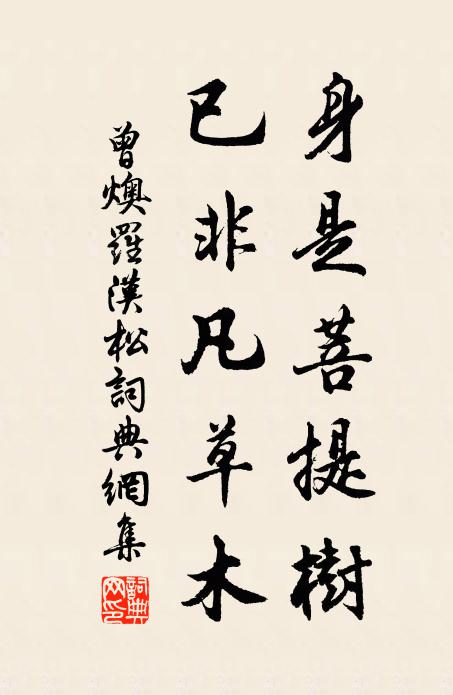 身是菩提樹
已非凡草木
曾燠羅漢松詞典網集
詞典網印